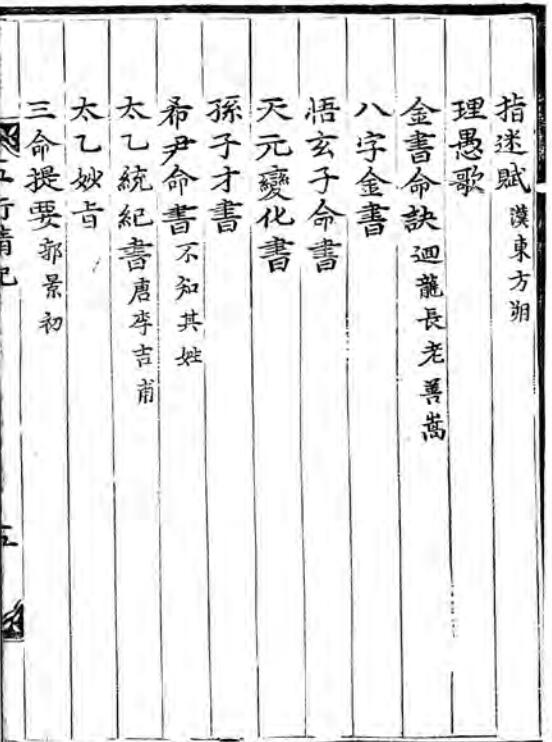 指迷賦 漢東方朔
理愚歌
金書命訣 迴龍長老善嵩
八字金書
悟玄子命書
天元變化書
孫子才書
希尹命書 不知其姓
太乙統紀書 唐李吉甫
太乙妙旨
三命提要 郭景初
五行精紀